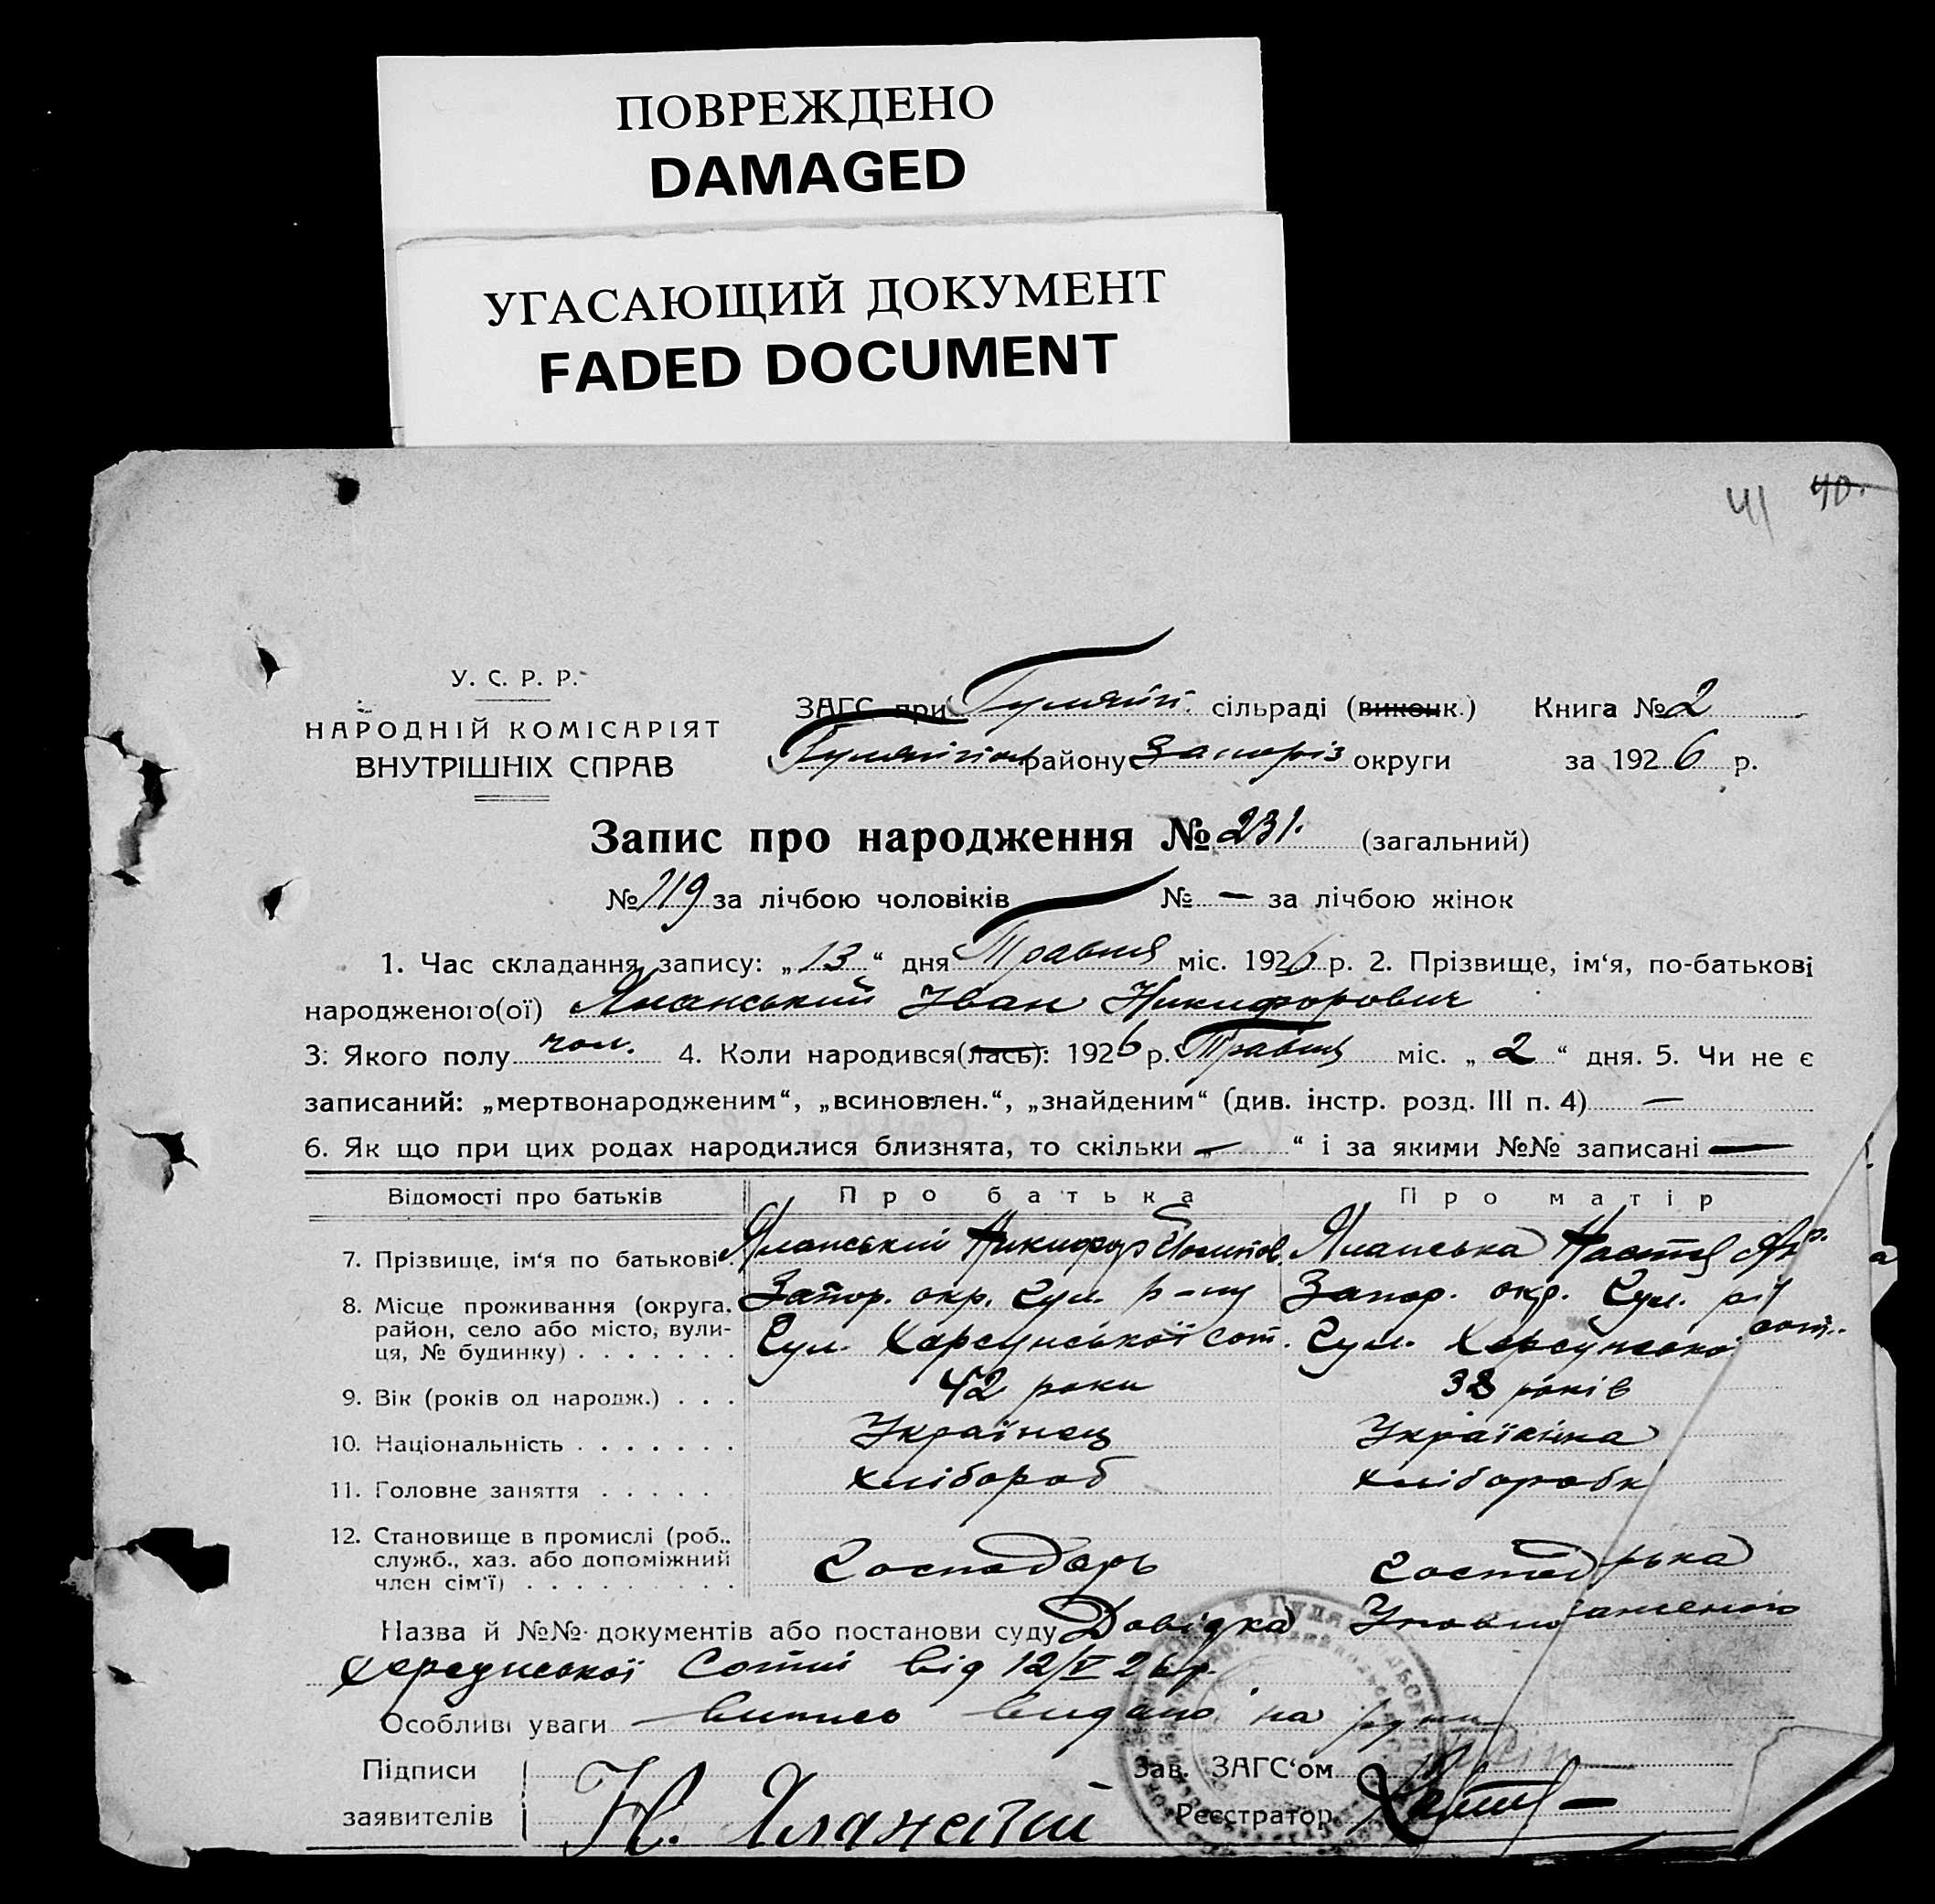 ПОВРЕЖДЕНО
DAMAGED
УГАСАЮЩИЙ ДОКУМЕНТ
FADED DOCUMENT
41 40.
У. С. Р. Р.
НАРОДНІЙ КОМІСАРІЯТ
ВНУТРІШНІХ СПРАВ
ЗАГС при Гуляйп. сільраді (виконк.) Книга № 2
району Запоріз округи за 1926 р.
Запис про народження № 231. (загальний)
№ 119 за лічбою чоловіків № — за лічбою жінок
1. Час складання запису: „13“ дня Травня міс. 1926 р. 2. Прізвище, ім‘я, по-батькові
народженого(ої) Яланський Іван Никифорович
3. Якого полу чол. 4. Коли народився(лась): 1926 р. Травня міс. „2“ дня. 5. Чи не є
записаний: „мертвонародженим“, „всиновлен.“, „знайденим“ (див. інстр. розд. III п. 4) —
6. Як що при цих родах народилися близнята, то скільки „—“ і за якими №№ записані —
Відомості про батьків Про батька Про матір
7. Прізвище, ім‘я по батькові Яланський Никифор Йосипов. Яланська Настя
8. Місце проживання (округа, Запор. окр. Гул. р-ну Запор. окр. Гул.
район, село або місто, вули-
ця, № будинку) Гул. Херсунської сот. Гул. Херсунської сот.
9. Вік (років од народж.) 42 роки 38 років
10. Національність Українець Українка
11. Головне заняття хлібороб хлібороб
12. Становище в промислі (роб.,
служб., хаз. або допоміжний
член сім‘ї) Господарь Господарька
Назва й №№ документів або постанови суду Довідка Уповноваженого
Херсунської Сотні від 12/V 26 р.
Особливі уваги Випись видано на руки
Підписи Зав. ЗАГС‘ом
заявителів Н. Яланский Реєстратор